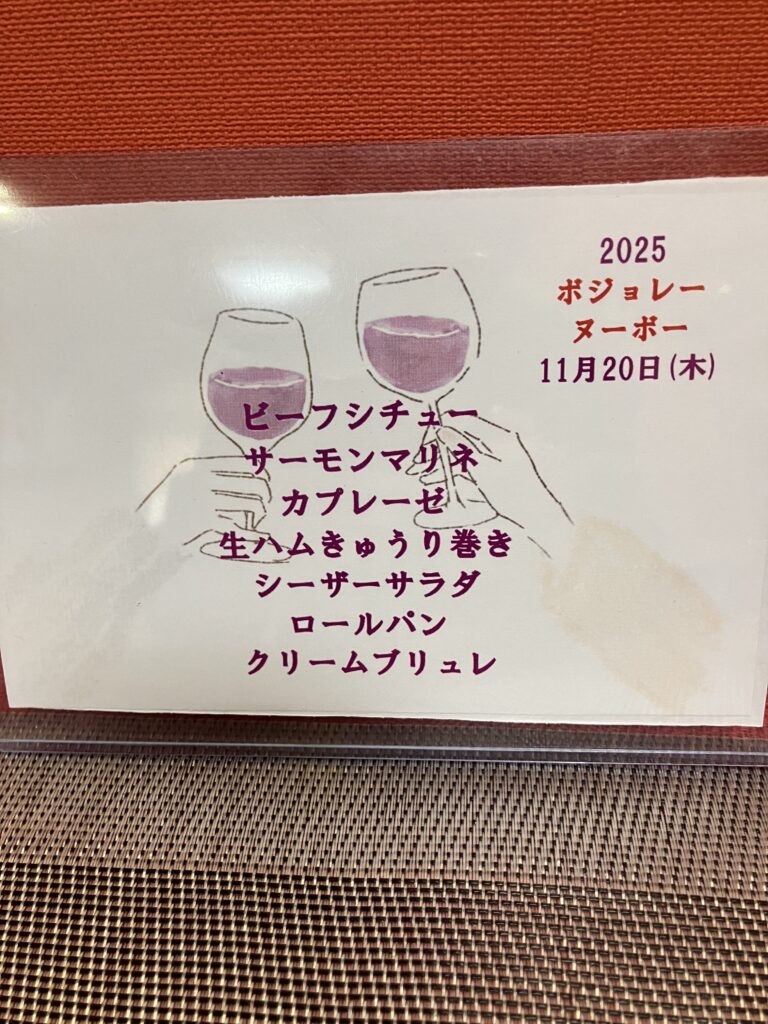 2025
ボジョレー
ヌーボー
11月20日(木)
ビーフシチュー
サーモンマリネ
カプレーゼ
生ハムきゅうり巻き
シーザーサラダ
ロールパン
クリームブリュレ